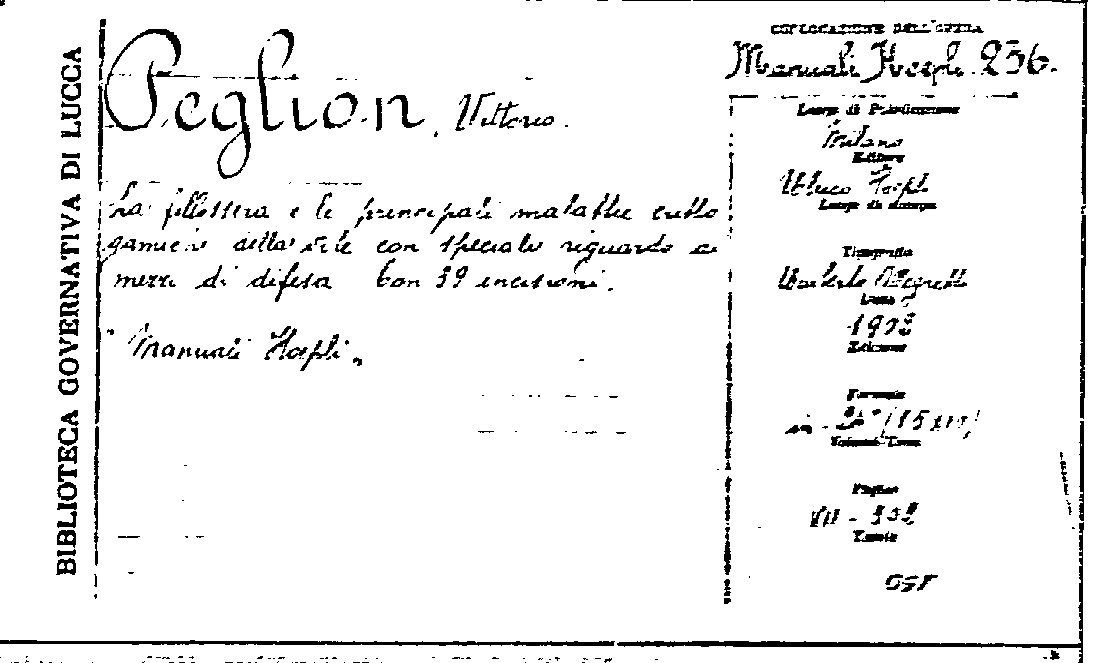 BIBLIOTECA GOVERNATIVA DI LUCCA
Peglion, Vittorio.
La fillossera e le principali malattie critto
gamiche della vite con speciale riguardo ai
mezzi di difesa Con 39 incisioni.
"Manuali Hoepli"
COLLOCAZIONE DELL'OPERA
Manuali Hoepli 236.
Luogo di Pubblicazione
Milano
Editore
Ulrico Hoepli
Luogo di stampa
Tipografia
Umberto Allegretti
Anno
1902
Edizione
Formato
in - 24° (15
Volumi-Tomo
Pagine
VII - 302
Tavole